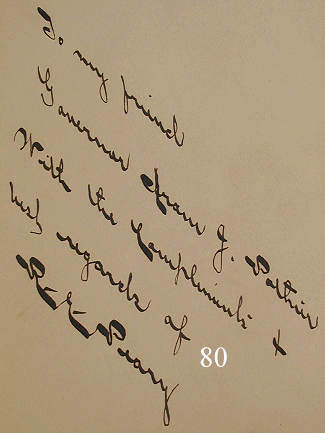 To my friend
Governor Aram J. Pothier
With the Compliments &
best regards of
R. E. Peary
80